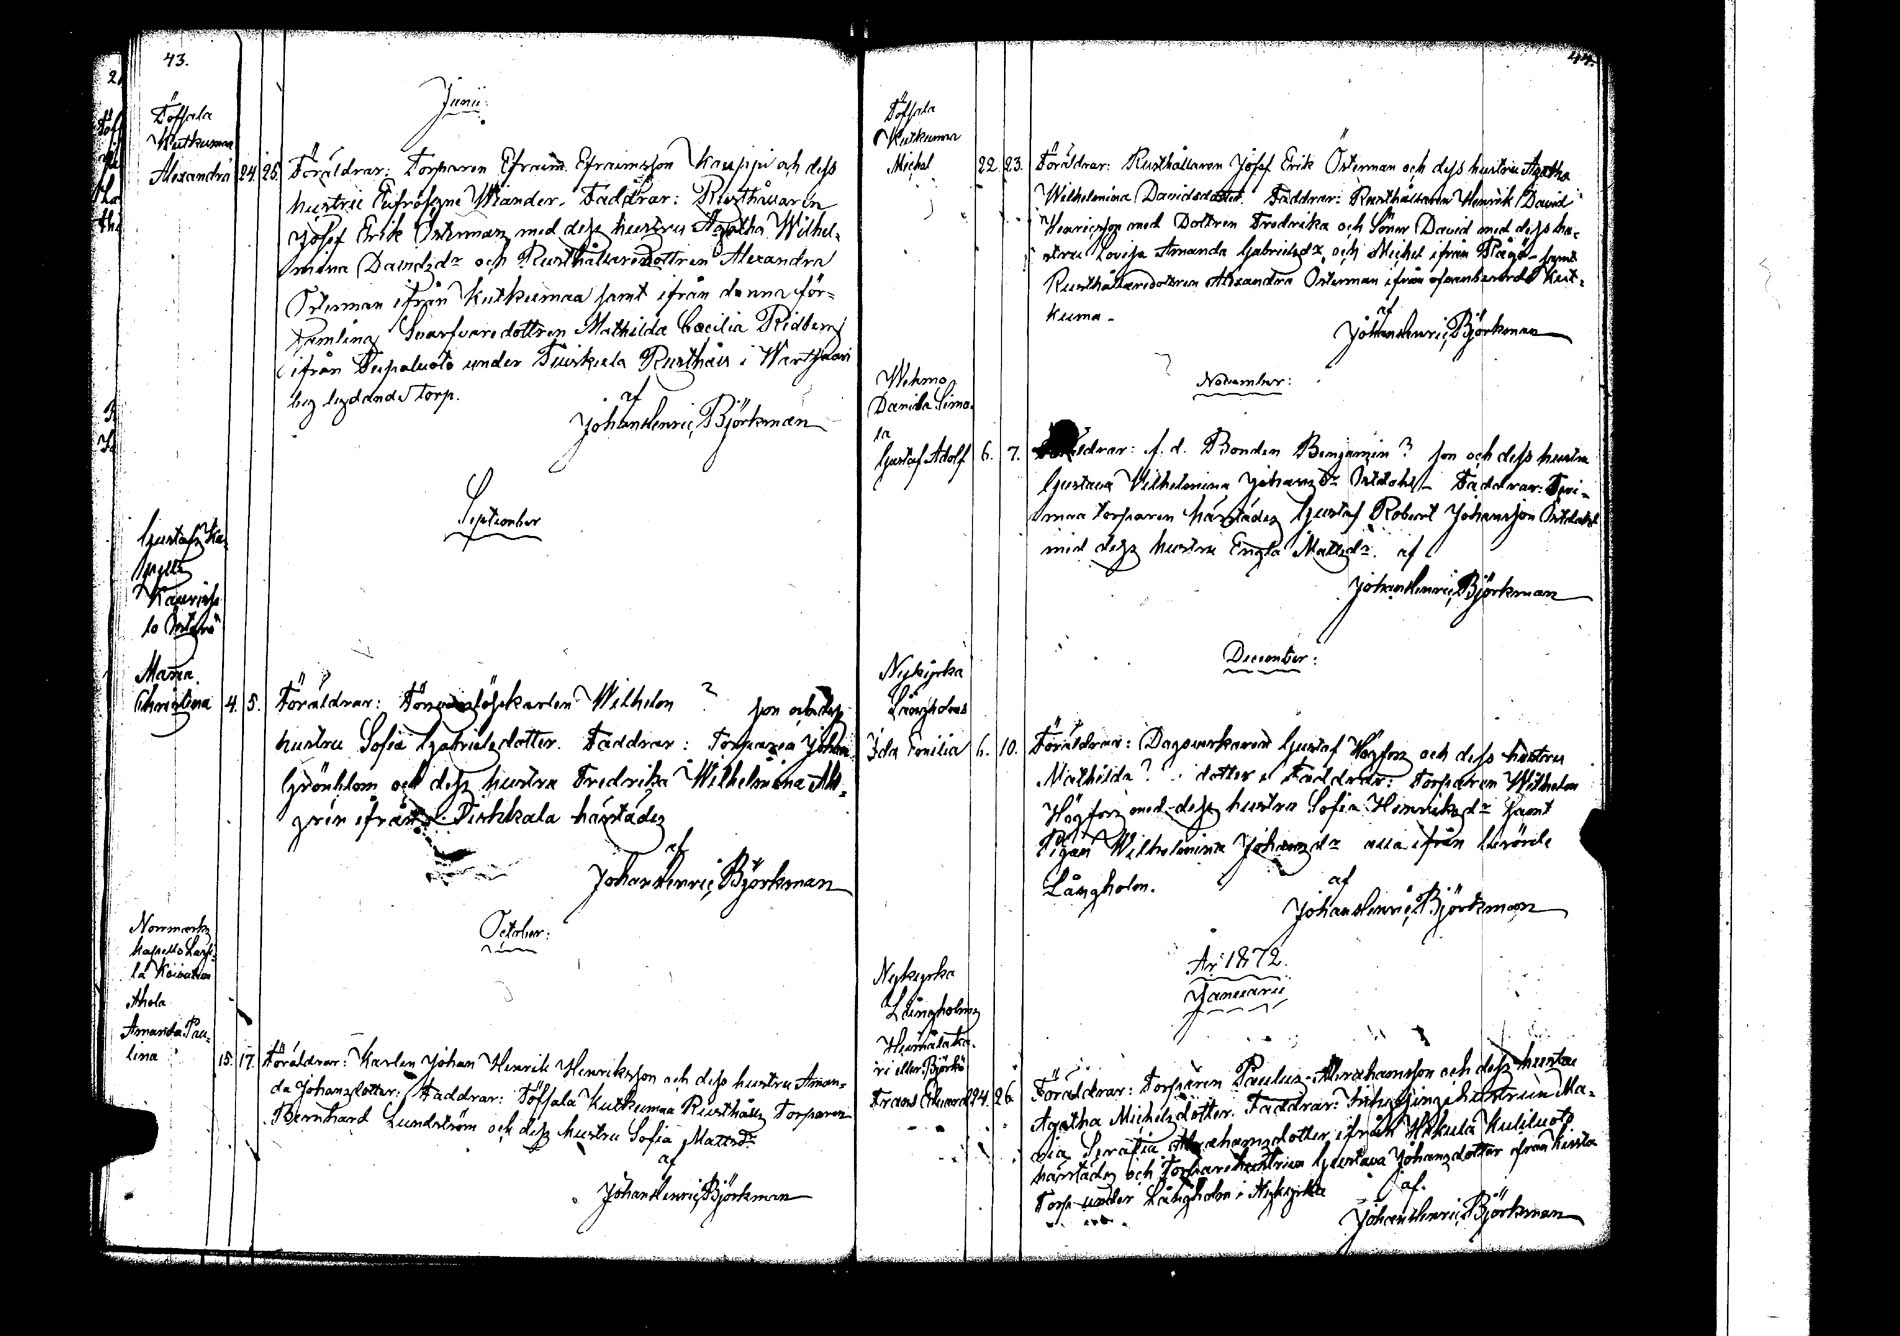 43.
Junii
Töfsala
Kutkumaa
Alexandra 24. 25. Föräldrar: Torparen Efraim Efraimsson Kauppi och dess
hustru Eufrosyne Wiander. Faddrar: Rusthållaren
Josef Erik Österman med dess hustru Agatha Wilhel-
mina Davidsdr och Rusthållaredottren Alexandra
Österman ifrån Kutkumaa samt ifrån denna för-
samling Svarfvaredottren Mathilda Cecilia Ridberg
ifrån under Rusthåll i
by lydande torp.
af
Johan Henric Björkman
September
Gustafs Ka-
pell
lo
Maria
Christina 4. 5. Föräldrar: Wilhelm ? son och dess
hustru Sofia Gabrielsdotter. Faddrar: Torparen Johan
Grönblom och dess hustru Fredrika Wilhelmina Ahl-
grén ifrån härstädes
af
Johan Henric Björkman
October:
Norrmarks
kapell
Ahola
Amanda Pau-
lina 15. 17. Föräldrar: Karlen Johan Henrik Henriksson och dess hustru Aman-
da Johansdotter. Faddrar: Töfsala Kutkumaa Rusthålls Torparen
Bernhard Lundström och dess hustru Sofia Mattsdr
af
Johan Henric Björkman
44.
Töfsala
Kutkumaa
Michel 22. 23. Föräldrar: Rusthållaren Josef Erik Österman och dess hustru Agatha
Wilhelmina Davidsdotter. Faddrar: Rusthållaren Henrik David
Henricsson med Dottren Fredrika och Sonen David med dess hu-
stru Lovisa Amanda Gabrielsdr och Michel ifrån Rågö samt
Rusthållaredottren Alexandra Österman ifrån ofvanberörde Kut-
kuma.
af
Johan Henric Björkman
November:
Wehmo
Danila Simo-
la
Gustaf Adolf 6. 7. Föräldrar: f. d. Bonden Benjamin ? son och dess hustru
Gustava Wilhelmina Johansdr Östdahl. Faddrar:
torparen härstädes Gustaf Robert Johansson Östdahl
med dess hustru Engla Mattsdr. af
Johan Henric Björkman
December:
Nykyrka
Långholms
Ida Emilia 6. 10. Föräldrar: Dagsverkaren Gustaf Högfors och dess hustru
Mathilda ? dotter. Faddrar: Torparen Wilhelm
Högfors med dess hustru Sofia Henriksdr samt
Pigan Wilhelmina Johansdr alla ifrån berörde
Långholm.
af
Johan Henric Björkman
År 1872.
Januarii
Nykyrka
Långholms
ri eller Björkö
Frans Edvard 24. 26. Föräldrar: Torparen Paulus Abrahamsson och dess hustru
Agatha Michelsdotter. Faddrar: Inhysingehustrun Ma-
ria Serafia Abrahamsdotter ifrån
härstädes och Torparehustrun Gustava Johansdotter ifrån
Torp under Långholm i Nykyrka
af.
Johan Henric Björkman